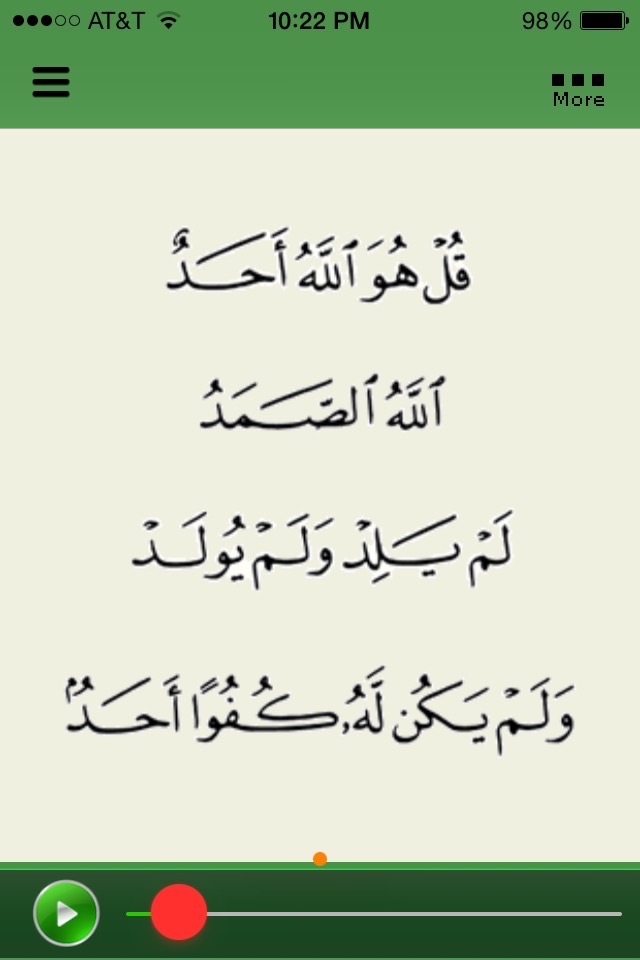 AT&T 10:22 PM 98%
More
قُلْ هُوَ ٱللَّهُ أَحَدٌ
ٱللَّهُ ٱلصَّمَدُ
لَمْ يَلِدْ وَلَمْ يُولَدْ
وَلَمْ يَكُن لَّهُۥ كُفُوًا أَحَدٌۢ